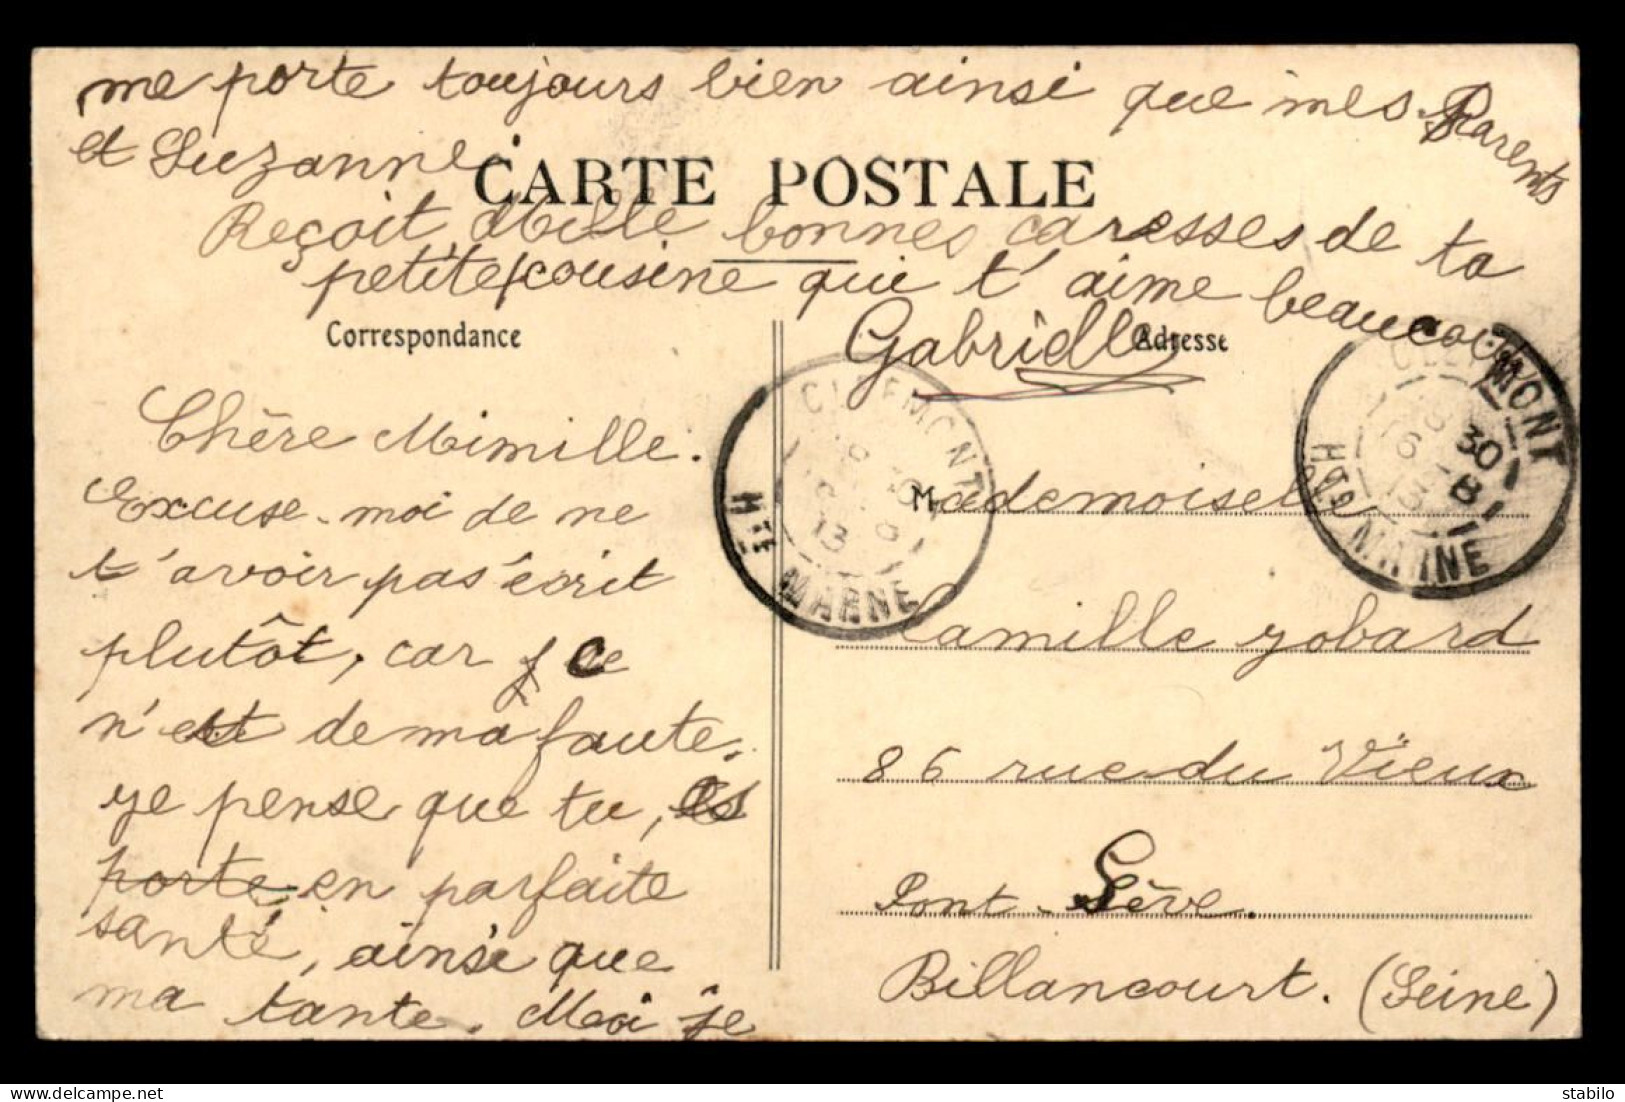 me porte toujours bien ainsi que mes Parents
et Suzanne.
CARTE POSTALE
Reçoit Mille bonnes caresses de ta
petite cousine qui t'aime beaucoup
Gabrielle
Correspondance
Adresse
Chère Mimille.
Excuse-moi de ne
t'avoir pas écrit
plutôt, car ce
n'est de ma faute.
je pense que tu, es
porte en parfaite
santé, ainsi que
ma tante. Moi je
Mademoiselle
Camille Jobard
86 rue du Vieux
Pont-Sève.
Billancourt. (Seine)
CLEFMONT
HTE MARNE
13
CLEFMONT
8 30
6 - 8
13
HTE MARNE
stabilo